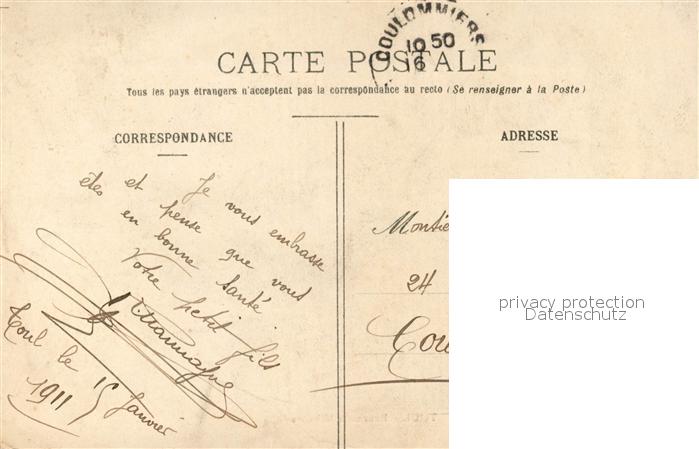 COULOMMIERS
10 50
16
CARTE POSTALE
Tous les pays étrangers n'acceptent pas la correspondance au recto (Se renseigner à la Poste)
CORRESPONDANCE
Je vous embrasse
et pense que vous
êtes en bonne santé
Votre petit fils
Toul le 15 Janvier
1911
ADRESSE
24
privacy protection
Datenschutz